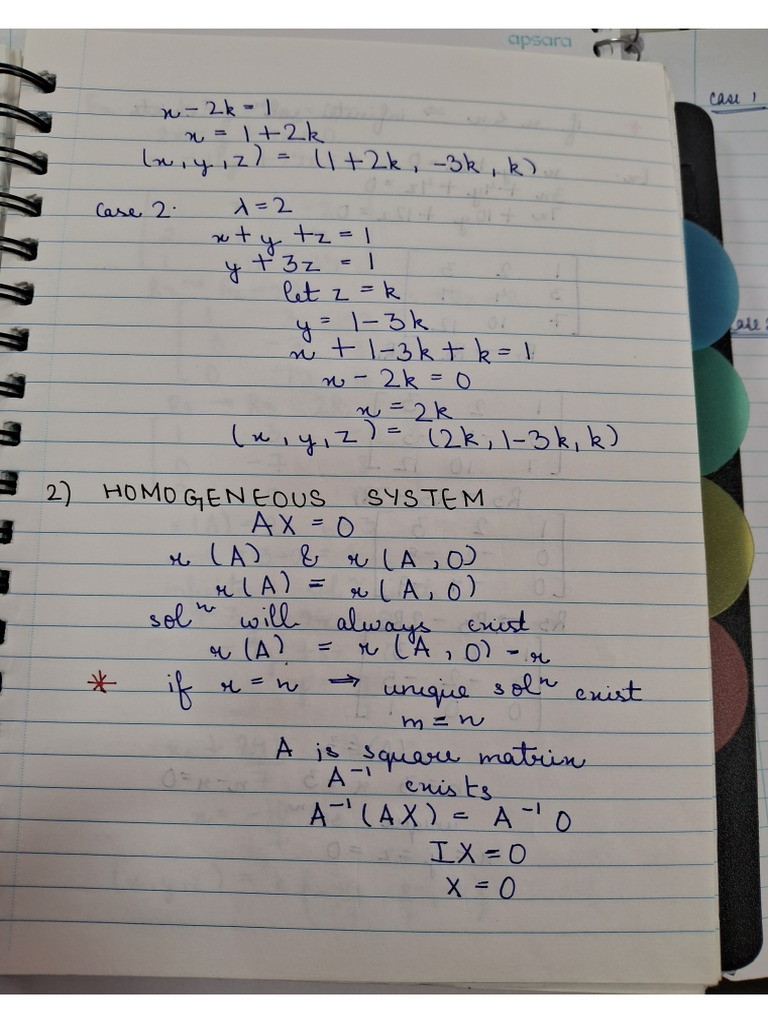 apsara
x - 2k = 1
x = 1 + 2k
(x, y, z) = (1+2k, -3k, k)
Case 2. λ = 2
x + y + z = 1
y + 3z = 1
let z = k
y = 1 - 3k
x + 1 - 3k + k = 1
x - 2k = 0
x = 2k
(x, y, z) = (2k, 1-3k, k)
2) HOMOGENEOUS SYSTEM
AX = 0
r (A) & r (A, 0)
r (A) = r (A, 0)
solⁿ will always exist
r (A) = r (A, 0) - r
* if r = n → unique solⁿ exist
m = n
A is square matrix
A⁻¹ exists
A⁻¹ (AX) = A⁻¹ 0
IX = 0
X = 0
Case 1